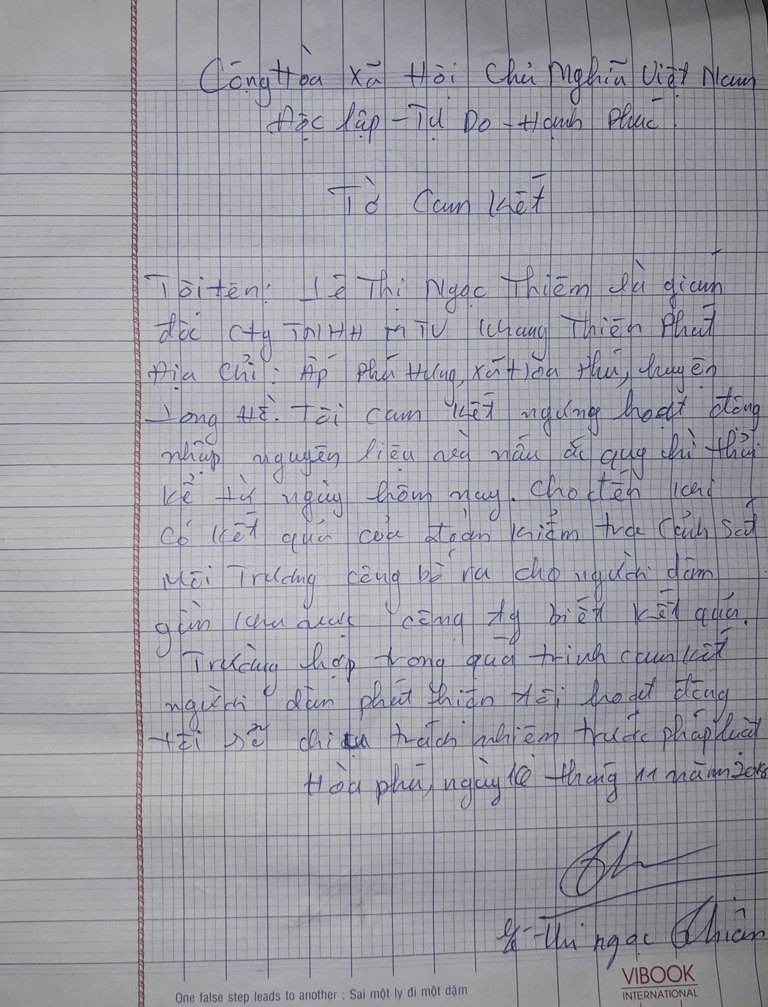 Cộng Hòa Xã Hội Chủ Nghĩa Việt Nam
Độc lập - Tự Do - Hạnh Phúc.
Tờ Cam Kết
Tôi tên: Lê Thị Ngọc Thiêm là giám
đốc cty TNHH MTV Khang Thiên Phát
Địa Chỉ: Ấp Phú Hưng, xã Hòa Phú, huyện
Long Hồ. Tôi cam kết ngưng hoạt động
nhập nguyên liệu và nấu quy chì thỏi
kể từ ngày hôm nay. cho đến khi
có kết quả của đoàn kiểm tra Cảnh Sát
Môi Trường công bố ra cho người dân
gần khu vực công ty biết kết quả.
Trường hợp trong quá trình cam kết
người dân phát hiện tôi hoạt động
tôi sẽ chịu trách nhiệm trước pháp luật
Hòa phú, ngày 10 tháng 11 năm 2018
Lê Thị ngọc
One false step leads to another : Sai một ly đi một dặm
VIBOOK
INTERNATIONAL